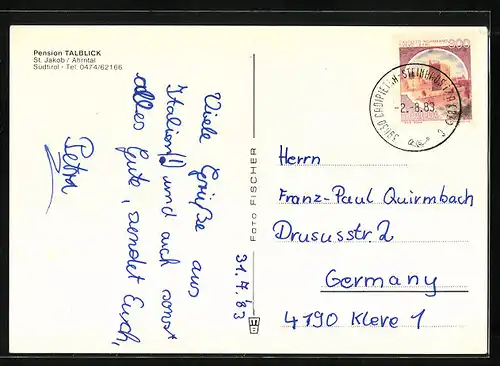 Pension TALBLICK
St. Jakob / Ahrntal
Südtirol - Tel. 0474/62166
Viele Grüße aus
Italien(!) und auch sonst
alles Gute, sendet Euch,
Petra
31.7.83
FOTO FISCHER
-2.-8.83
Herrn
Franz-Paul Quirmbach
Drususstr. 2
Germany
4190 Kleve 1